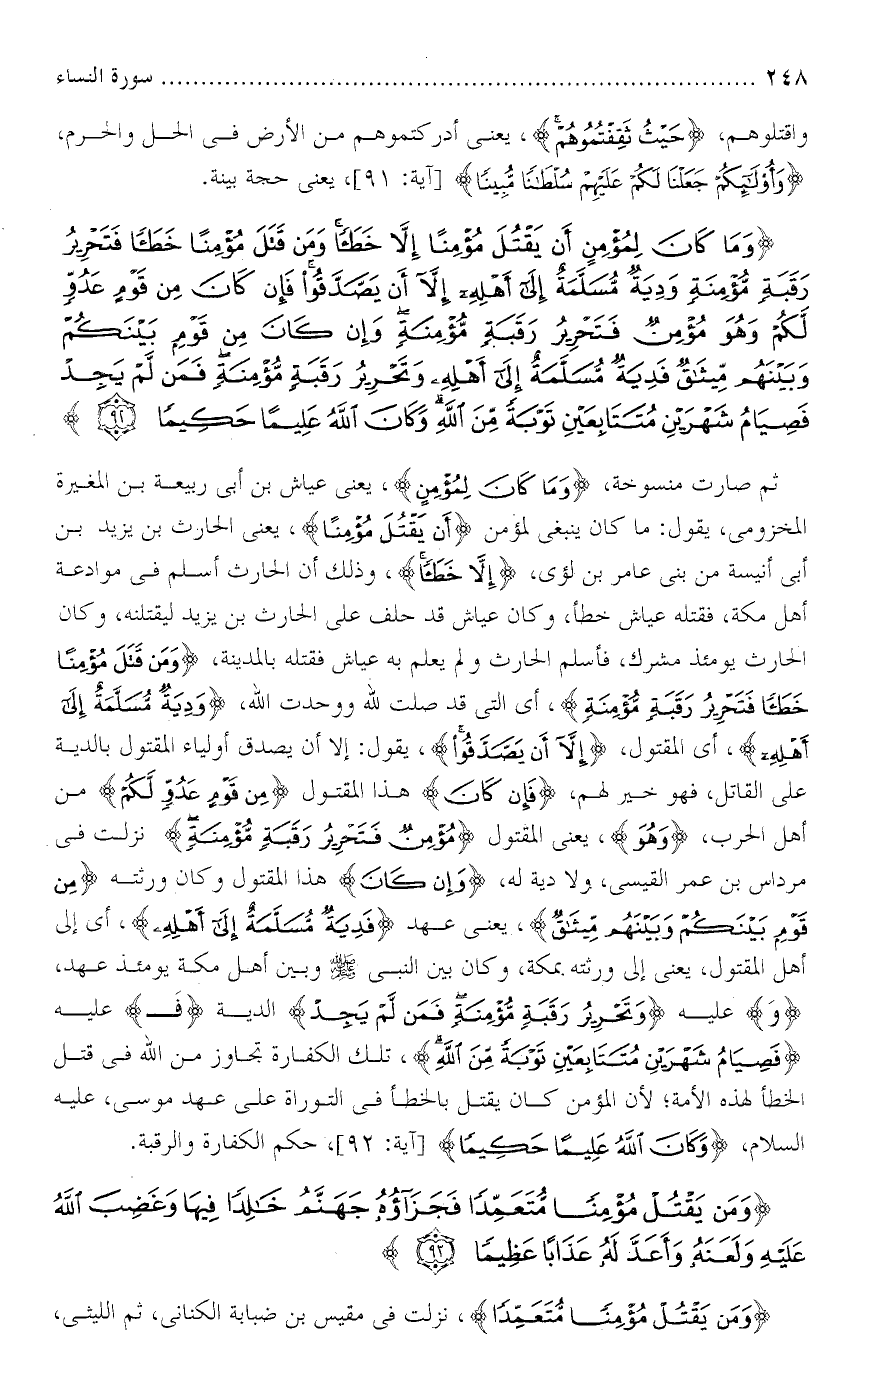 ٢٤٨ ........................................................................ سورة النساء
واقتلوهم، ﴿حَيْثُ ثَقِفْتُمُوهُمْ﴾، يعنى أدركتموهم من الأرض فى الحل والحرم،
﴿وَأُوْلَٰٓئِكُمْ جَعَلْنَا لَكُمْ عَلَيْهِمْ سُلْطَٰنًا مُّبِينًا﴾ [آية: ٩١]، يعنى حجة بينة.
﴿وَمَا كَانَ لِمُؤْمِنٍ أَن يَقْتُلَ مُؤْمِنًا إِلَّا خَطَـًٔا وَمَن قَتَلَ مُؤْمِنًا خَطَـًٔا فَتَحْرِيرُ
رَقَبَةٍ مُّؤْمِنَةٍ وَدِيَةٌ مُّسَلَّمَةٌ إِلَىٰٓ أَهْلِهِۦٓ إِلَّآ أَن يَصَّدَّقُوا۟ فَإِن كَانَ مِن قَوْمٍ عَدُوٍّ
لَّكُمْ وَهُوَ مُؤْمِنٌ فَتَحْرِيرُ رَقَبَةٍ مُّؤْمِنَةٍ وَإِن كَانَ مِن قَوْمٍ بَيْنَكُمْ
وَبَيْنَهُم مِّيثَٰقٌ فَدِيَةٌ مُّسَلَّمَةٌ إِلَىٰٓ أَهْلِهِۦ وَتَحْرِيرُ رَقَبَةٍ مُّؤْمِنَةٍ فَمَن لَّمْ يَجِدْ
فَصِيَامُ شَهْرَيْنِ مُتَتَابِعَيْنِ تَوْبَةً مِّنَ ٱللَّهِ وَكَانَ ٱللَّهُ عَلِيمًا حَكِيمًا ٩٢﴾
ثم صارت منسوخة، ﴿وَمَا كَانَ لِمُؤْمِنٍ﴾، يعنى عياش بن أبى ربيعة بن المغيرة
المخزومى، يقول: ما كان ينبغى لمؤمن ﴿أَن يَقْتُلَ مُؤْمِنًا﴾، يعنى الحارث بن يزيد بن
أبى أنيسة من بنى عامر بن لؤى، ﴿إِلَّا خَطَـًٔا﴾، وذلك أن الحارث أسلم فى موادعة
أهل مكة، فقتله عياش خطأ، وكان عياش قد حلف على الحارث بن يزيد ليقتلنه، وكان
الحارث يومئذ مشرك، فأسلم الحارث ولم يعلم به عياش فقتله بالمدينة، ﴿وَمَن قَتَلَ مُؤْمِنًا
خَطَـًٔا فَتَحْرِيرُ رَقَبَةٍ مُّؤْمِنَةٍ﴾، أى التى قد صلت لله ووحدت الله، ﴿وَدِيَةٌ مُّسَلَّمَةٌ إِلَىٰٓ
أَهْلِهِۦٓ﴾، أى المقتول، ﴿إِلَّآ أَن يَصَّدَّقُوا۟﴾، يقول: إلا أن يصدق أولياء المقتول بالدية
على القاتل، فهو خير لهم، ﴿فَإِن كَانَ﴾ هذا المقتول ﴿مِن قَوْمٍ عَدُوٍّ لَّكُمْ﴾ من
أهل الحرب، ﴿وَهُوَ﴾، يعنى المقتول ﴿مُؤْمِنٌ فَتَحْرِيرُ رَقَبَةٍ مُّؤْمِنَةٍ﴾ نزلت فى
مرداس بن عمر القيسى، ولا دية له، ﴿وَإِن كَانَ﴾ هذا المقتول وكان ورثته ﴿مِن
قَوْمٍ بَيْنَكُمْ وَبَيْنَهُم مِّيثَٰقٌ﴾، يعنى عهد ﴿فَدِيَةٌ مُّسَلَّمَةٌ إِلَىٰٓ أَهْلِهِۦ﴾، أى إلى
أهل المقتول، يعنى إلى ورثته بمكة، وكان بين النبى ﷺ وبين أهل مكة يومئذ عهد،
﴿وَ﴾ عليه ﴿وَتَحْرِيرُ رَقَبَةٍ مُّؤْمِنَةٍ فَمَن لَّمْ يَجِدْ﴾ الدية ﴿فَـ﴾ عليه
﴿فَصِيَامُ شَهْرَيْنِ مُتَتَابِعَيْنِ تَوْبَةً مِّنَ ٱللَّهِ﴾، تلك الكفارة تجاوز من الله فى قتل
الخطأ لهذه الأمة؛ لأن المؤمن كان يقتل بالخطأ فى التوراة على عهد موسى، عليه
السلام، ﴿وَكَانَ ٱللَّهُ عَلِيمًا حَكِيمًا﴾ [آية: ٩٢]، حكم الكفارة والرقبة.
﴿وَمَن يَقْتُلْ مُؤْمِنًا مُّتَعَمِّدًا فَجَزَآؤُهُۥ جَهَنَّمُ خَٰلِدًا فِيهَا وَغَضِبَ ٱللَّهُ
عَلَيْهِ وَلَعَنَهُۥ وَأَعَدَّ لَهُۥ عَذَابًا عَظِيمًا ٩٣﴾
﴿وَمَن يَقْتُلْ مُؤْمِنًا مُّتَعَمِّدًا﴾، نزلت فى مقيس بن ضبابة الكنانى، ثم الليثى،